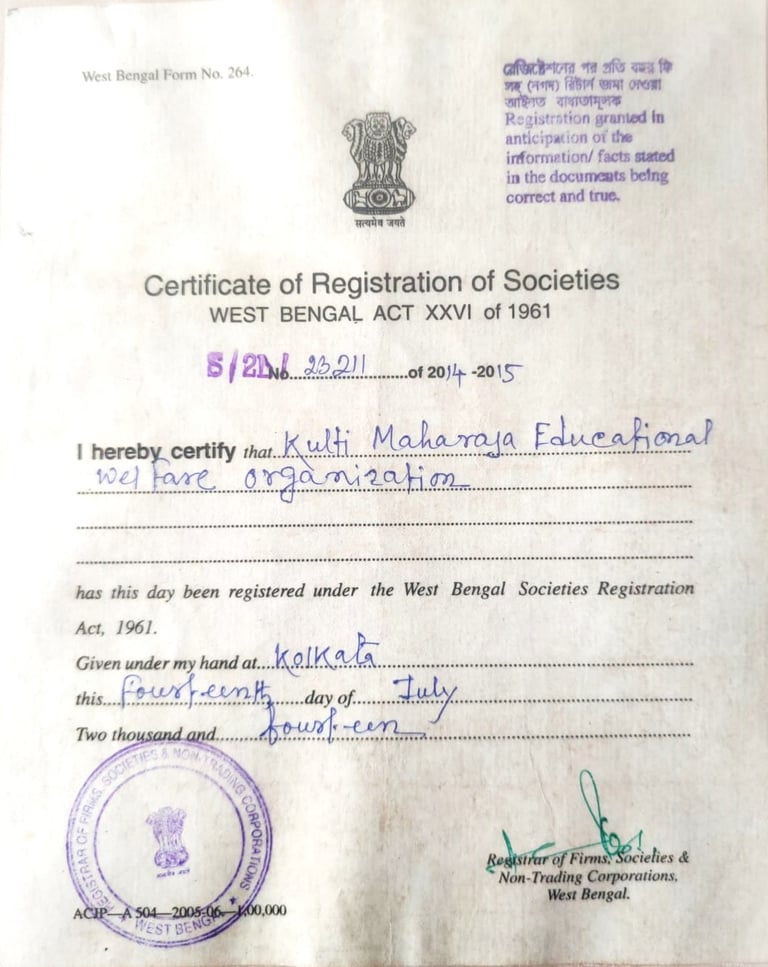 West Bengal Form No. 264.
রেজিষ্ট্রেশনের পর প্রতি বছর ফি
সহ (নগদ) রিটার্ন জমা দেওয়া
আইনত বাধ্যতামূলক
Registration granted in
anticipation of the
information/ facts stated
in the documents being
correct and true.
सत्यमेव जयते
Certificate of Registration of Societies
WEST BENGAL ACT XXVI of 1961
S/2L/ No. 23211 of 2014 -2015
I hereby certify that Kulti Maharaja Educational
welfare organization
has this day been registered under the West Bengal Societies Registration
Act, 1961.
Given under my hand at Kolkata
this fourteenth day of July
Two thousand and fourteen
REGISTRAR OF FIRMS, SOCIETIES & NON-TRADING CORPORATIONS
WEST BENGAL
Registrar of Firms, Societies &
Non-Trading Corporations,
West Bengal.
ACJP—A 504—2005-06—1,00,000